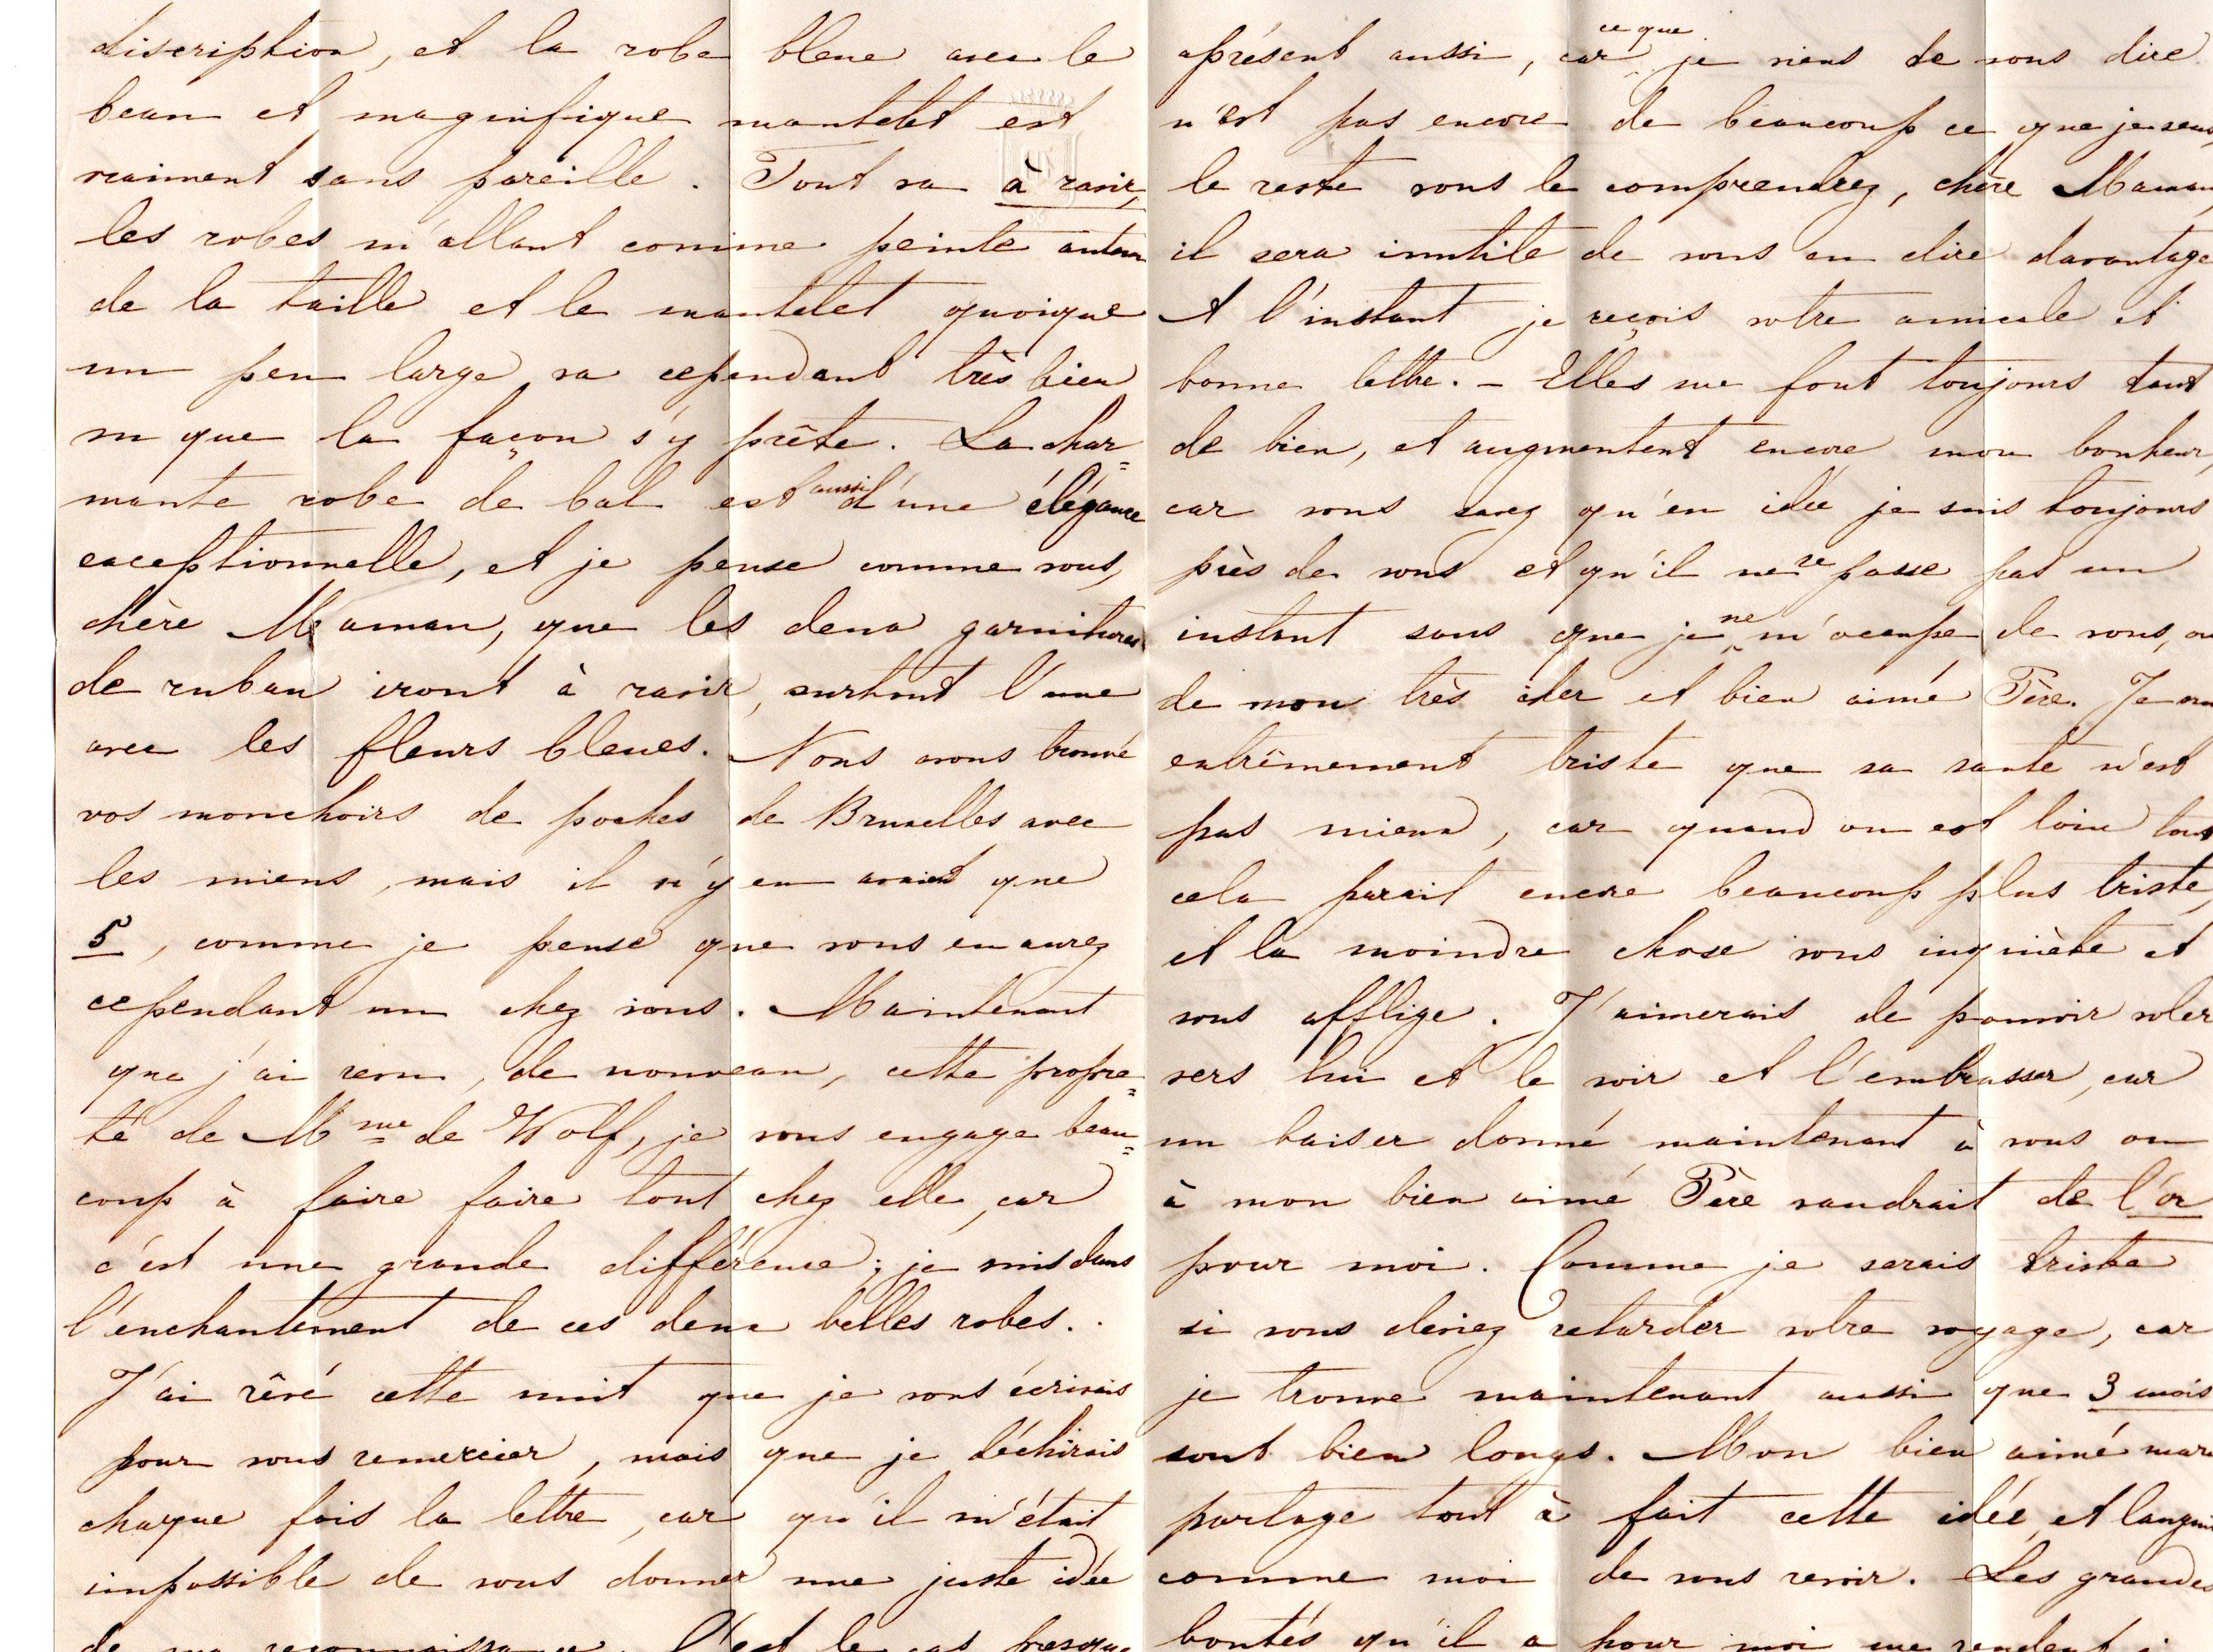 discription, et la robe bleue avec le
beau et magnifique mantelet est
vraiment sans pareille. Tout va à ravir,
les robes m'allant comme peinte autour
de la taille et le mantelet quoique
un peu large va cependant très bien
vu que la façon s'y prête. La char=
mante robe de bal est aussi d'une élégance
exceptionnelle, et je pense comme vous,
chère Maman, que les deux garnitures
de ruban iront à ravir, surtout l'une
avec les fleurs bleues. Nous avons trouvé
vos mouchoirs de poches de Bruxelles avec
les miens, mais il n'y en avaient que
5, comme je pense que vous en aurez
cependant un chez vous. Maintenant
que j'ai revu, de nouveau, cette propre=
té de Mme de Wolf, je vous engage beau=
coup à faire faire tout chez elle, car
c'est une grande différence; je suis dans
l'enchantement de ces deux belles robes..
J'ai rêvé cette nuit que je vous écrivais
pour vous remercier, mais que je déchirais
chaque fois la lettre, car qu'il m'était
impossible de vous donner une juste idée
de ma reconnaissance. C'est le cas presque
aprésent aussi, car ce que je viens de vous dire
n'est pas encore de beaucoup ce que je sens,
le reste vous le comprendrez, chère Maman,
il sera inutile de vous en dire davantage
A l'instant je reçois votre amicale et
bonne lettre. - Elles me font toujours tant
de bien, et augmentent encore mon bonheur,
car vous savez qu'en idée je suis toujours
près de vous et qu'il ne se passe pas un
instant sans que je ne m'occupe de vous, ou
de mon très cher et bien aimé Père. Je
extrêmement triste que sa santé n'est
pas mieux, car quand on est loin tout
cela parait encore beaucoup plus triste,
et la moindre chose vous inquiète et
vous afflige. J'aimerais de pouvoir voler
vers lui et le voir et l'embrasser, car
un baiser donné maintenant à vous ou
à mon bien aimé Père vaudrait de l'or
pour moi. Comme je serais triste
si vous deviez retarder votre voyage, car
je trouve maintenant aussi que 3 mois
sont bien longs. Mon bien aimé mari
partage tout à fait cette idée, et languit
comme moi de vous revoir. Les grandes
bontés qu'il a pour moi me rendent